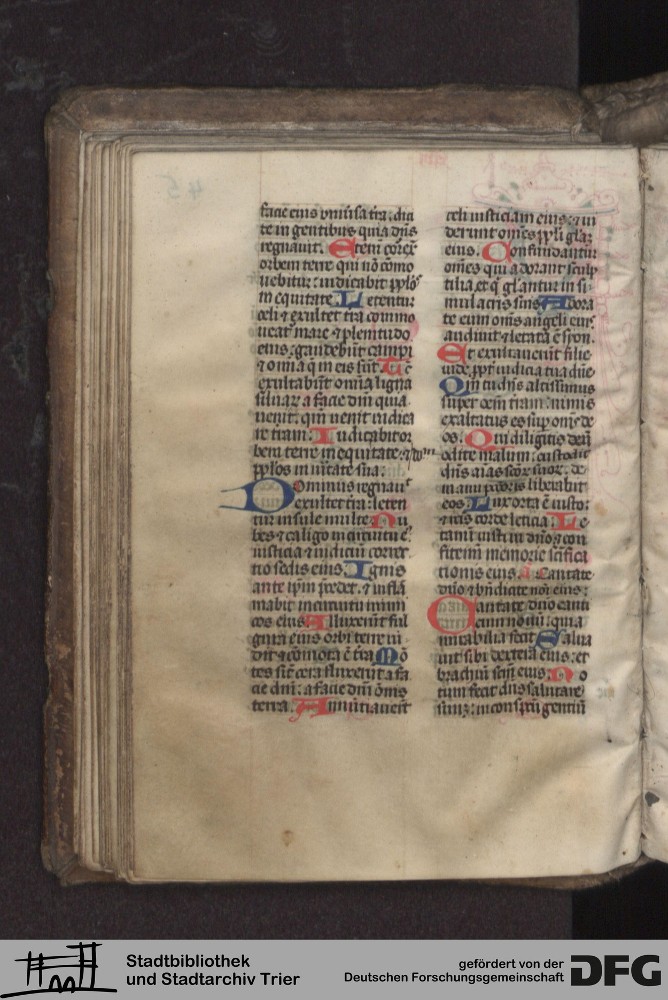 facie eius vniũsa tr̃a. dici
te in gentibus quia dñs
regnauit. Etem̃ correx̃
orbem terre qui nõ cõmo
uebitur: iudicabit pplõs
in equitate. Letentur
celi ⁊ exultet tr̃a commo
ueat̃ mare ⁊ plenitudo
eius: gaudebũt campi
⁊ omĩa q̃ in eis sũt. Tũc
exultabũt omĩa ligna
siluaꝝ a facie dñi quia
uenit: qm̃ uenit iudica
re terram. Iudicabit or
bem terre in equitate: ⁊
pplõs in ũitate sua.
Dominus regnauit
exultet tr̃a: leten
tur insule multe. Nu
bes ⁊ caligo in circuitu eiꝰ
iusticia ⁊ iudiciũ correc
tio sedis eius. Ignis
ante ip̃m p̃cedet: ⁊ inflã
mabit in circuitu inimi
cos eius. Alluxerũt ful
gura eius orbi terre ui
dit ⁊ cõmota ẽ tr̃a. Mõ
tes sic̃ cera fluxerũt a fa
cie dñi: a facie dñi õmis
terra. Annũciauerũt
celi iusticiam eius: ⁊ ui
derunt om̃es ppl̃i gl̃aꝫ
eius. Confundantur
om̃es qui adorant sculp
tilia: et q̃ gl̃antur in si
mulacris suis. Adora
te eum om̃s angeli eiꝰ:
audiuit ⁊ letata ẽ syon.
Et exultauerũt filie
iude: ppt̃ iudicia tua dñe.
Qm̃ tu dñs altissimus
super oem̃ terram: nimis
exaltatus es suꝑ om̃s de
os. Qui diligitis deũ
odite malum: custodit
dñs aĩas scõꝝ suoꝝ: de
manu pctõris liberabit
eos. Lux orta ẽ iusto:
⁊ rctĩs corde leticia. Le
tamĩ iusti in dño: ⁊ con
fitemĩ memorie sc̃ifica
tionis eius. Cantate
dño ⁊ bñdicite nõi eius:
Cantate dño canti
cum nouũ: quia
mirabilia fecit. Salua
uit sibi dextera eius: et
brachiũ sc̃m eius. No
tum fecit dñs salutare
suũ: in conspectu gentiũ
45
Stadtbibliothek
und Stadtarchiv Trier
gefördert von der
Deutschen Forschungsgemeinschaft
DFG